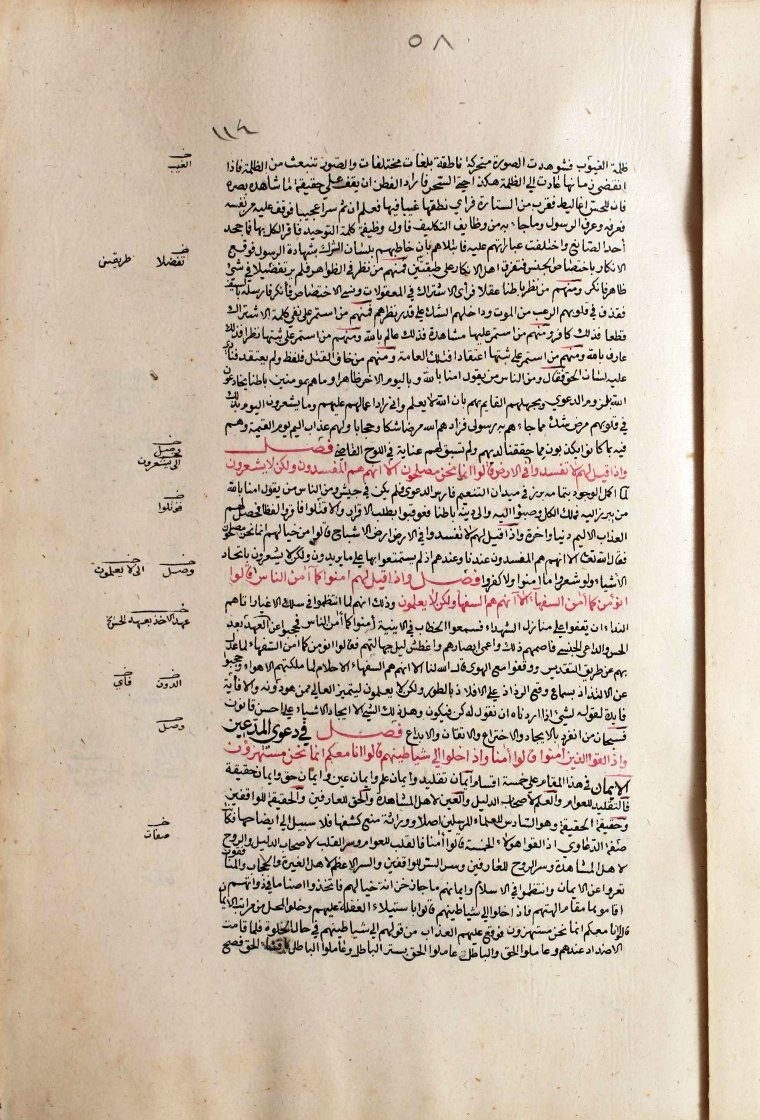 ٥٨
١١٤
ظلمة الغيوب فشوهدت الصورة متحركة ناطقة بلغات مختلفات والصور تنبعث من الظلمة فاذا
انقضى زمانها عادت الى الظلمة هكذا حتى السحر فاراد الفطن ان يقف على حقيقة ما شاهده بصره
فان للحس اغاليط فقرب من الستارة فراى نطقها غيبا فيها فعلم ان ثم سرا عجيبا فوقف عليه من نفسه
فعرفه وعرف الرسول وما جاء به من وظايف التكليف فاول وظيفة كلمة التوحيد فاقر الكل بها فما جحد
احد الصانع واختلفت عباراتهم عليه فابتلاهم بان خاطبهم بلسان الشرك بشهادة الرسول فوقع
الانكار باختصاص الجنس فتفرق اهل الانكار على طريقتين فمنهم من نظر في الظواهر فلم ير تفضيلا في شئ
ظاهر فانكر ومنهم من نظر باطنا عقلا فراى الاشتراك في المعقولات ونسى الاختصاص فانكر فارسله بالسيف
فقذف في قلوبهم الرعب من الموت وداخلهم الشك على قدر نظرهم فمنهم من استمر على نفى كلمة الاشتراك
قطعا فذلك كافر ومنهم من استمر عليها مشاهدة فذلك عالم بالله ومنهم من استمر على ثبتها نظرا فذلك
عارف بالله ومنهم من استمر على ثبتها اعتقادا فتلك العامة ومنهم من خاف القتل فلفظ ولم يعتقد فنادى
عليه لسان الحق فقال ومن الناس من يقول امنا بالله وباليوم الاخر ظاهرا وما هم بمومنين باطنا يخادعون
الله بلزوم الدعوى وبجهلهم القايم بهم بان الله لا يعلم وانى ارد اعمالهم عليهم وما يشعرون اليوم بذلك
في قلوبهم مرض شك مما جاءهم به رسولى فزادهم الله مرضا شكا وحجابا ولهم عذاب اليم يوم القيمة وهم
فيه بما كانوا يكذبون مما حققنا لديهم ولم تسبق لهم عناية في اللوح القاضى فصــل
واذا قيل لهم لا تفسدوا في الارض قالوا انما نحن مصلحون الا انهم هم المفسدون ولكن لا يشعرون
لما اكمل الوجود بتمامه برز في ميدان التنعيم فارس الدعوى فلم يكن في جيش ومن الناس من يقول امنا بالله
من يبرز اليه فملك الكل وصبوا اليه والى دينه باطنا فعوقبوا بطلب الاقرار والا قتلوا فاقروا لفظا فحصل لهم
العذاب الاليم دنيا واخرة واذا قيل لهم لا تفسدوا في الارض ارض الاشباح قالوا من خيالهم انما نحن مصلحون
فقال الله تعالى الا انهم هم المفسدون عندنا وعندهم اذ لم يستمتعوا بها على ما يريدون ولكن لا يشعرون باتحاد
الاشياء ولو شعروا ما امنوا ولا كفروا فصــل واذا قيل لهم امنوا كما آمن الناس قالوا
انؤمن كما آمن السفهاء الا انهم هم السفهاء ولكن لا يعلمون وذلك انهم لما انتظموا في سلك الاغيار اتاهم
النداء ان يقفوا على منازل الشهداء فسمعوا الخطاب في الاينية آمنوا كما آمن الناس فحجبوا عن العهد بعد
الحس والداعى الجنسى فاصمهم ذلك واعمى ابصارهم واغطش ليل جهالتهم فقالوا انؤمن كما آمن السفهاء لما عدل
بهم عن طريق التقديس ووقفوا مع الهوى قال الله لنا الا انهم هم السفهاء الاحلام لما ملكتهم الاهواء وحجبوا
عن الالتذاذ بسماع وقع الرذاذ على الافلاذ بالطور ولكن لا يعلمون ليتميز العالى ممن هو دونه والا فاية
فايدة لقوله لشئ اذا اردناه ان نقول له كن فيكون وهل ذلك الشئ الا ايجاد الاشياء على احسن قانون
فسبحان من انفرد بالايجاد والاختراع والاتقان والابداع فصــل في دعوى المدعين
واذا لقوا الذين آمنوا قالوا آمنا واذا خلوا الى شياطينهم قالوا انا معكم انما نحن مستهزؤن
الايمان في هذا المقام على خمسة اقسام ايمان تقليد وايمان علم وايمان عين وايمان حق وايمان حقيقة
فالتقليد للعوام والعلم لاصحاب الدليل والعين لاهل المشاهدة والحق للعارفين والحقيقة للواقفين
وحقيقة الحقيقة وهو السادس للعلماء المرسلين اصلا ووراثة منع كشفها فلا سبيل الى ايضاحها فكانت
صفة الدعاوى اذا لقوا هولاء الخمسة قالوا آمنا فالقلب للعوام وسر القلب لاصحاب الدليل والروح
لاهل المشاهدة وسر الروح للعارفين وسر السر للواقفين والسر الاعظم لاهل الغيرة والحجاب والمنافقون
تعروا عن الايمان وانتظموا في الاسلام وايمانهم ما جاز خزانة خيالهم فاتخذوا اصناما في ذواتهم
اقاموها مقام الهتهم فاذا خلوا الى شياطينهم قالوا باستيلاء الغفلة عليهم وخلوا المحل من مراتب الايمان
قالوا انا معكم انما نحن مستهزؤن فوقع عليهم العذاب من قولهم الى شياطينهم في حال الخلوة فلما قامت
الاضداد عندهم وعاملوا الحق والباطل عاملوا الحق بستر الباطل وعاملوا الباطل بافشاء الحق فصح
الغيب
تفضلا طريقين
الى يشعرون
قوتلوا
وصل الى لا يعلمون
عهد الاخذ بعهد الحس
الدون فاى
وصل
صفات